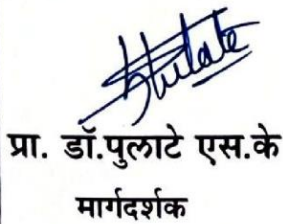 प्रा. डॉ.पुलाटे एस.के
मार्गदर्शक